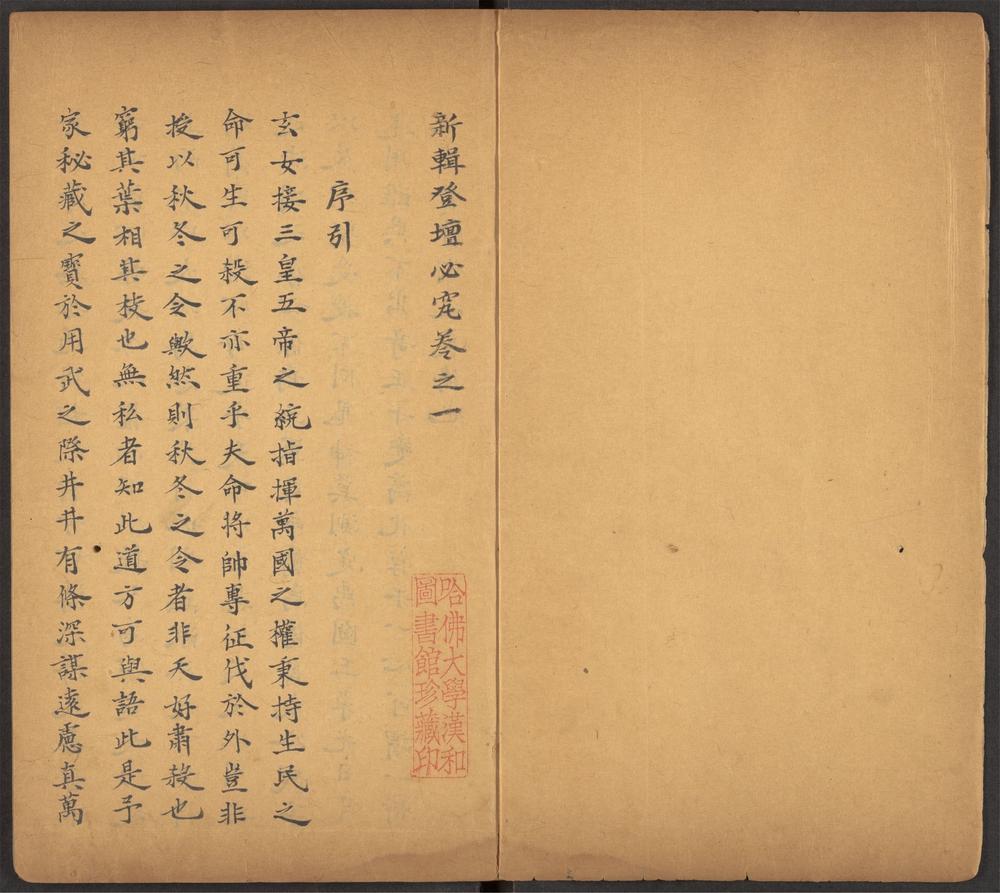 新輯登壇必究卷之一
序引
玄女接三皇五帝之統指揮萬國之權秉持生民之
命可生可殺不亦重乎夫命將帥專征伐於外豈非
授以秋冬之令歟然則秋冬之令者非天好肅殺也
窮其葉相其枝也無私者知此道方可與語此是予
家秘藏之寶於用武之際井井有條深謀遠慮真萬
哈佛大學漢和
圖書館珍藏印